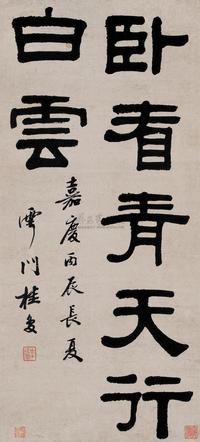 卧看青天行
白雲
嘉慶丙辰長夏
雩門桂馥